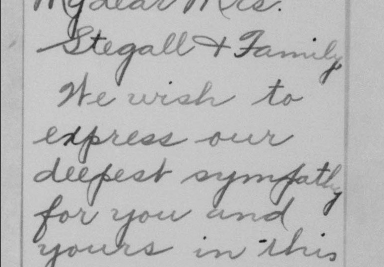 My dear Mrs.
Stegall & Family,
We wish to
express our
deepest sympathy
for you and
yours in this